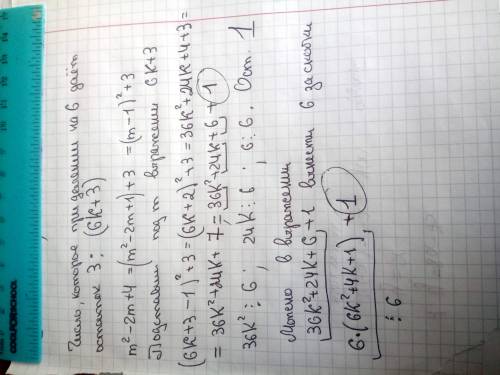 Число, которое при делении на 6 даёт
остаток 3: (6k+3)
m²-2m+4 = (m²-2m+1)+3 = (m-1)²+3
Подставим под m выражение 6k+3
(6k+3-1)²+3 = (6k+2)²+3 = 36k²+24k+4+3 =
= 36k²+24k+7 = 36k²+24k+6+1
36k²⋮6; 24k⋮6; 6⋮6. Ост. 1
Можно в выражении
36k²+24k+6+1 вынести 6 за скобки
6·(6k²+4k+1)+1
⋮6